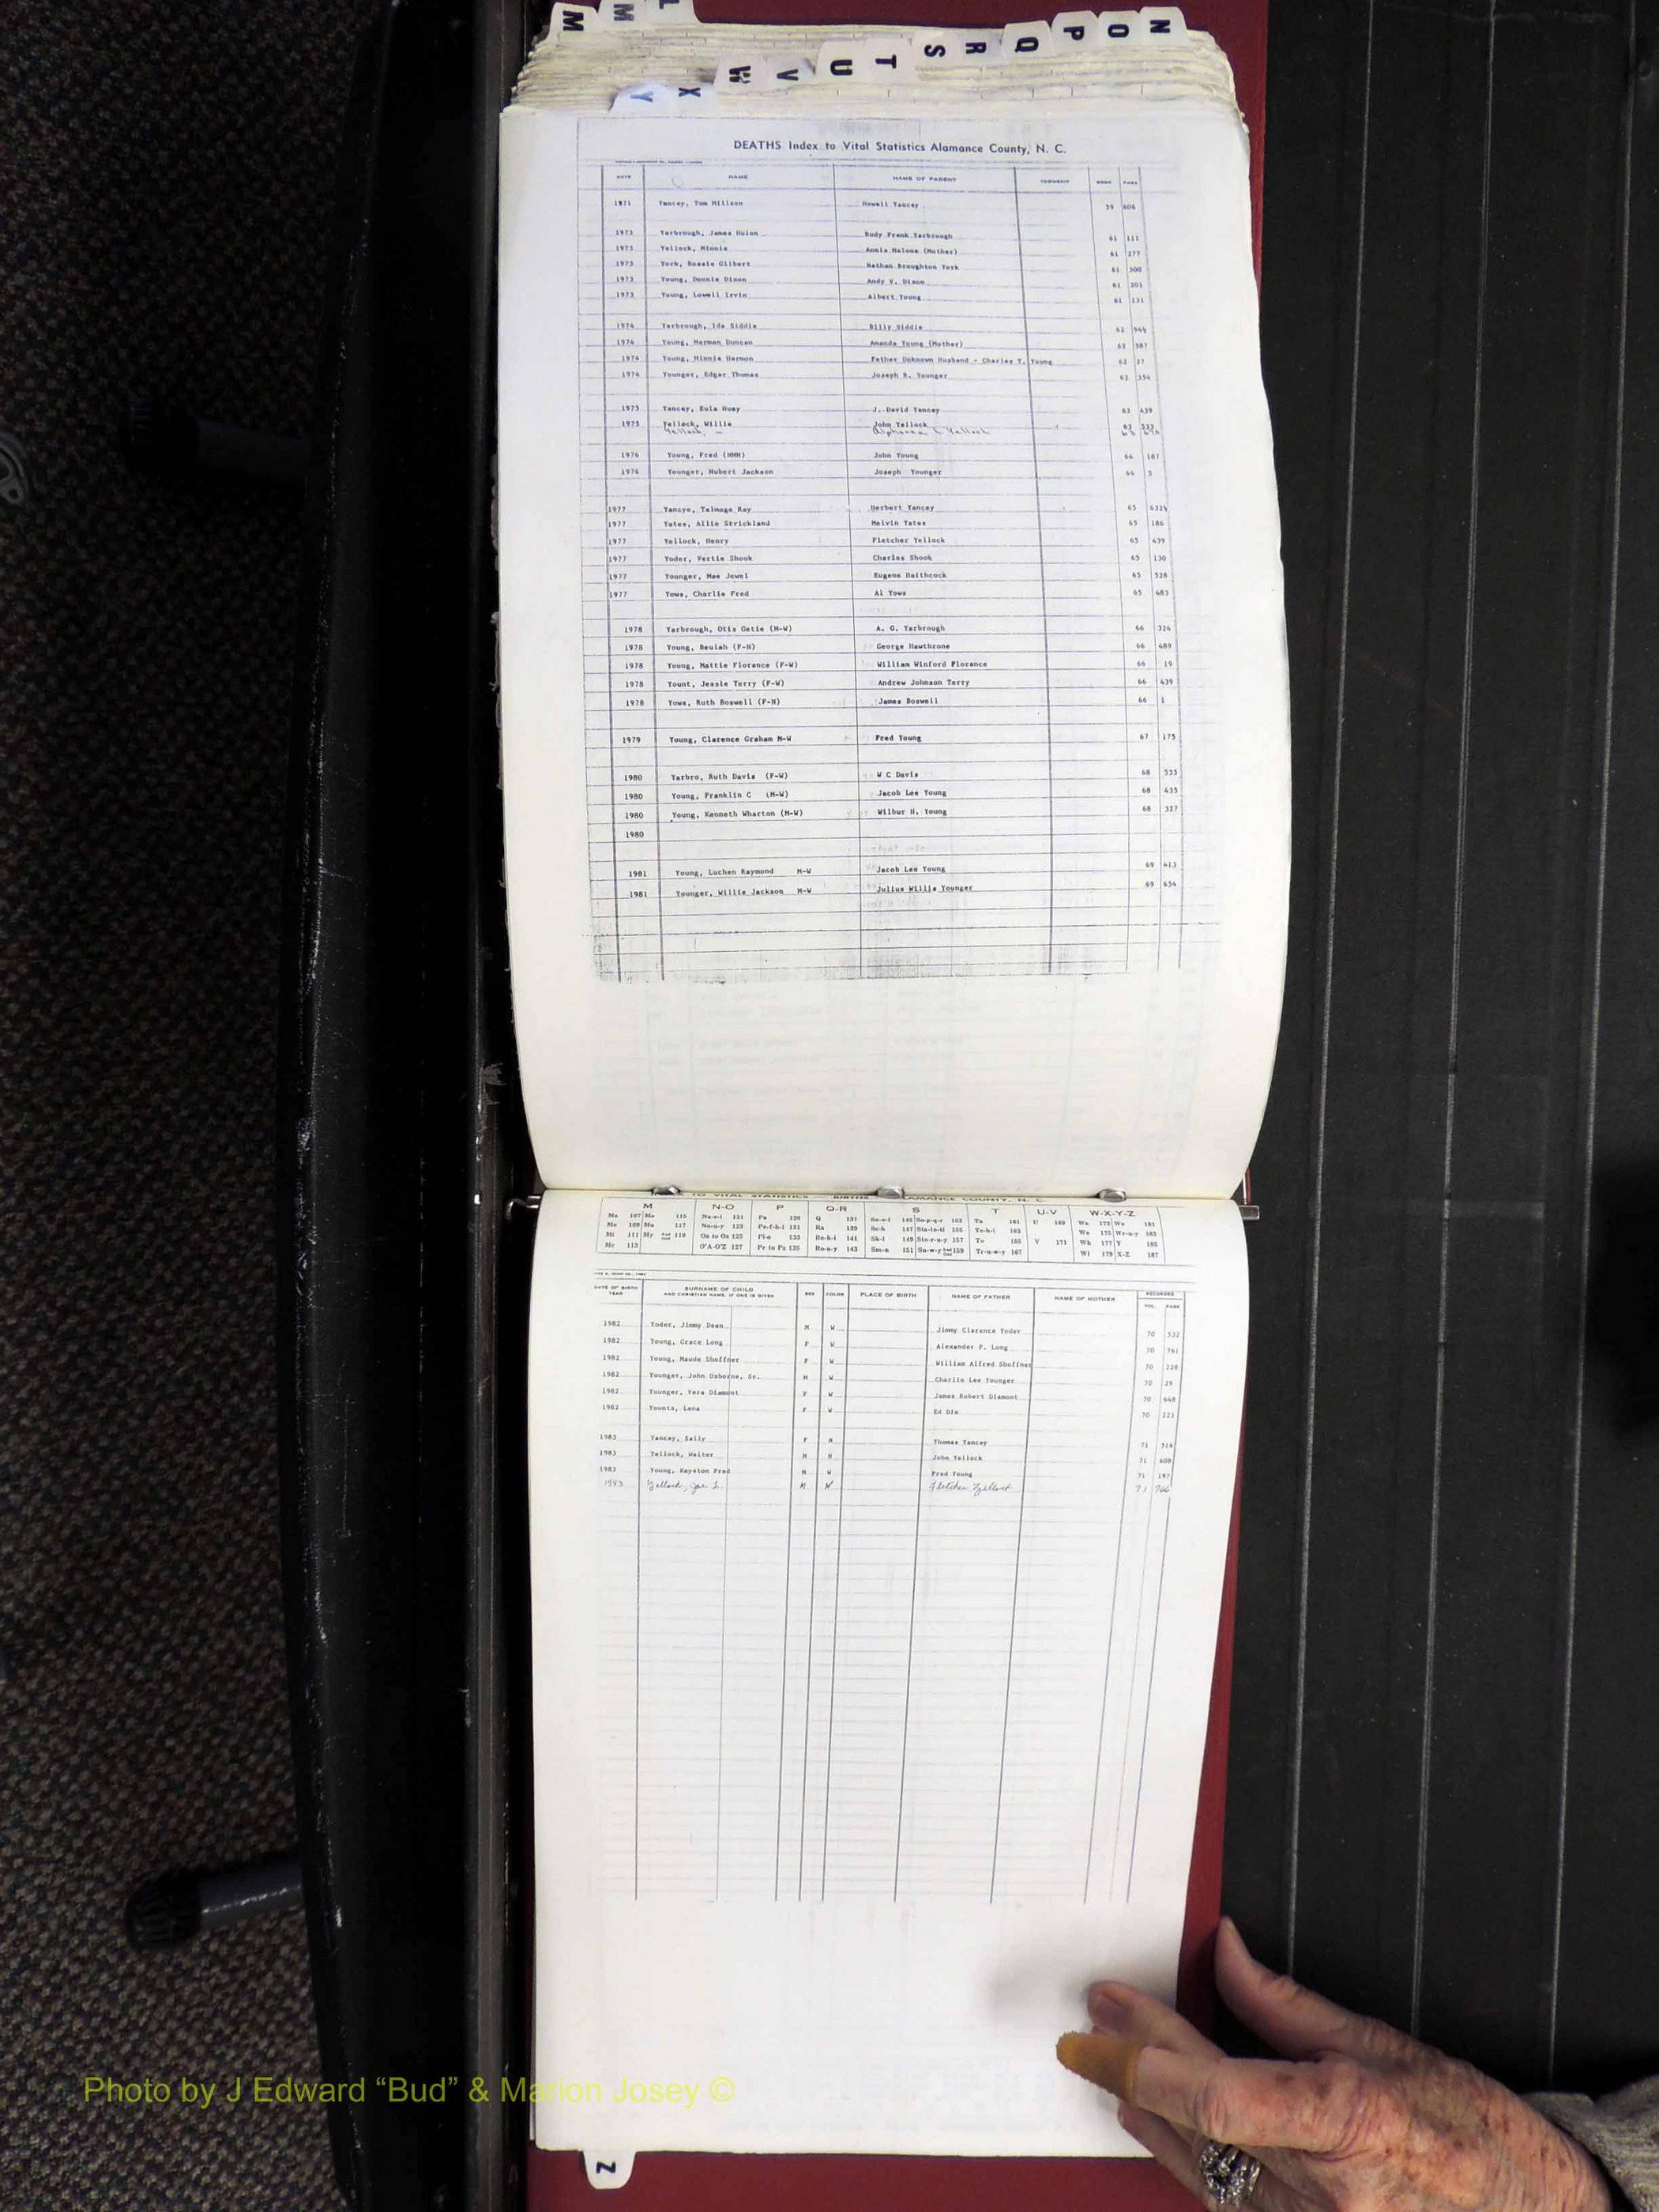 M M L
N O P Q R S T U V W X Y
DEATHS Index to Vital Statistics Alamance County, N. C.
DATE NAME NAME OF PARENT TOWNSHIP BOOK PAGE
1971 Yancey, Tom Millson Howell Yancey 59 606
1973 Yarbrough, James Hulon Rudy Frank Yarbrough 61 111
1973 Yellock, Minnie Annie Malone (Mother) 61 277
1973 York, Rossie Gilbert Nathan Broughton York 61 300
1973 Young, Donnie Dixon Andy V. Dixon 61 201
1973 Young, Lowell Irvin Albert Young 61 131
1974 Yarbrough, Ida Siddle Billy Siddle 62
1974 Young, Herman Duncan Amanda Young (Mother) 62 587
1974 Young, Minnie Harmon Father Unknown Husband - Charles T. Young 62 27
1974 Younger, Edgar Thomas Joseph R. Younger 62 354
1975 Yancey, Eula Huey J. David Yancey 63 439
1975 Yellock, Willie John Yellock 63 533
Yellock, Yellock
1976 Young, Fred (NMN) John Young 64 187
1976 Younger, Hubert Jackson Joseph Younger 64 5
1977 Yancye, Talmage Ray Herbert Yancey 65 632½
1977 Yates, Allie Strickland Melvin Yates 65 186
1977 Yellock, Henry Fletcher Yellock 65 439
1977 Yoder, Vertie Shook Charles Shook 65 130
1977 Younger, Mae Jewel Eugene Haithcock 65 528
1977 Yows, Charlie Fred Al Yows 65 483
1978 Yarbrough, Otis Getie (M-W) A. G. Yarbrough 66 324
1978 Young, Beulah (F-N) George Hawthrone 66 489
1978 Young, Mattie Florance (F-W) William Winford Florance 66 19
1978 Yount, Jessie Terry (F-W) Andrew Johnson Terry 66 439
1978 Yows, Ruth Boswell (F-N) James Boswell 66 1
1979 Young, Clarence Graham M-W Fred Young 67 175
1980 Yarbro, Ruth Davis (F-W) W C Davis 68 533
1980 Young, Franklin C (M-W) Jacob Lee Young 68 435
1980 Young, Kenneth Wharton (M-W) Wilbur H. Young 68 327
1980
1981 Young, Luchen Raymond M-W Jacob Lee Young 69 413
1981 Younger, Willie Jackson M-W Julius Willis Younger 69 654
TO VITAL STATISTICS BIRTHS ALAMANCE COUNTY, N. C.
M N-O P Q-R S T U-V W-X-Y-Z
Ma 107 Mo 115 Na-e-i 121 Pa 129 Q 137 Sa-e-i 145 So-p-q-r 153 Ta 161 U 169 Wa 173 Wo 181
Me 109 Mu 117 No-u-y 123 Pe-f-h-i 131 Ra 139 Sc-h 147 Sta-te-ti 155 Te-h-i 163 We 175 Wr-u-y 183
Mi 111 My 119 Oa to Oz 125 Pl-o 133 Re-h-i 141 Sk-l 149 Sto-r-u-y 157 To 165 V 171 Wh 177 Y 185
Mc 113 O'A-O'Z 127 Pr to Pz 135 Ro-u-y 143 Sm-n 151 Su-w-y 159 Tr-u-w-y 167 Wi 179 X-Z 187
DATE OF BIRTH YEAR SURNAME OF CHILD AND CHRISTIAN NAME, IF ONE IS GIVEN SEX COLOR PLACE OF BIRTH NAME OF FATHER NAME OF MOTHER RECORDED VOL. PAGE
1982 Yoder, Jimmy Dean M W Jimmy Clarence Yoder 70 532
1982 Young, Grace Long F W Alexander P. Long 70 761
1982 Young, Maude Shoffner F W William Alfred Shoffner 70 228
1982 Younger, John Osborne, Sr. M W Charlie Lee Younger 70 29
1982 Younger, Vera Diamont F W James Robert Diamont 70 648
1982 Younts, Lena F W Ed Dix 70 223
1983 Yancey, Sally F N Thomas Yancey 71 316
1983 Yellock, Walter M N John Yellock 71 608
1983 Young, Keyston Fred M W Fred Young 71 197
1983 Yellock, Joe L. M N Fletcher Yellock 71 766
Photo by J Edward “Bud” & Marion Josey ©
Z